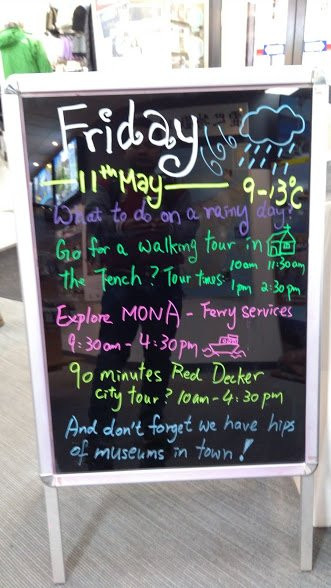 Friday
11th May 9-13°C
What to do on a rainy day?
Go for a walking tour in
the Tench? Tour times: 10am 11:30am
1pm 2:30pm
Explore MONA - Ferry services
9:30am - 4:30pm
90 minutes Red Decker
city tour? 10am - 4:30pm
And don't forget we have hips
of museums in town!